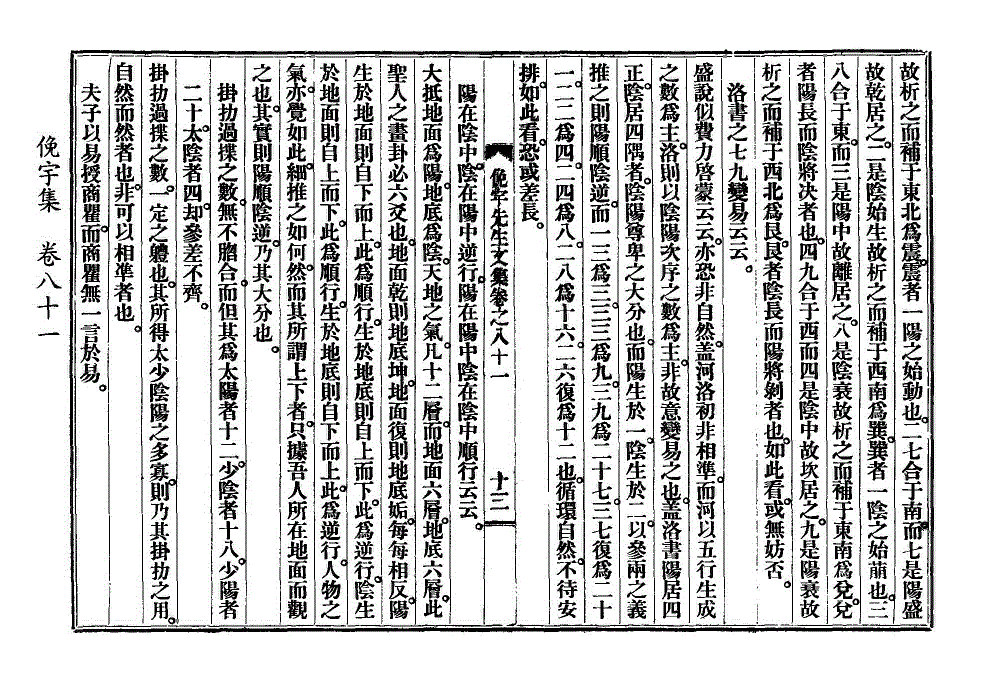 故析之而補于東北爲震。震者一陽之始動也。二七合于南。而七是陽盛
故乾居之。二是陰始生故析之而補于西南爲巽。巽者一陰之始萠也。三
八合于東。而三是陽中故離居之。八是陰衰故析之而補于東南爲兌。兌
者陽長而陰將决者也。四九合于西而四是陰中故坎居之。九是陽衰故
析之而補于西北爲艮。艮者陰長而陽將剝者也。如此看。或無妨否。
洛書之七九變易云云。
盛說似費力啓蒙云云。亦恐非自然。盖河洛初非相準。而河以五行生成
之數爲主。洛則以陰陽次序之數爲主。非故意變易之也。盖洛書陽居四
正。陰居四隅者。陰陽尊卑之大分也。而陽生於一。陰生於二。以參兩之義
推之則陽順陰逆。而一三爲三。三三爲九。三九爲二十七。三七復爲二十
一。二二爲四。二四爲八。二八爲十六。二六復爲十二也。循環自然。不待安
排。如此看。恐或差長。
俛宇先生文集卷之八十一 十三
陽在陰中陰在陽中逆行。陽在陽中陰在陰中順行云云。
大抵地面爲陽。地底爲陰。天地之氣。凡十二層。而地面六層。地底六層。此
聖人之畫卦必六爻也。地面乾則地底坤。地面復則地底姤。每每相反。陽
生於地面則自下而上。此爲順行。生於地底則自上而下。此爲逆行。陰生
於地面則自上而下。此爲順行。生於地底則自下而上。此爲逆行。人物之
氣。亦覺如此。細推之如何。然而其所謂上下者。只據吾人所在地面而觀
之也。其實則陽順陰逆。乃其大分也。
掛扐過揲之數。無不脗合。而但其爲太陽者十二。少陰者十八。少陽者
二十。太陰者四。却參差不齊。
掛扐過揲之數。一定之軆也。其所得太少陰陽之多寡。則乃其掛扐之用。
自然而然者也。非可以相準者也。
夫子以易授商瞿。而商瞿無一言於易。
俛宇集 卷八十一